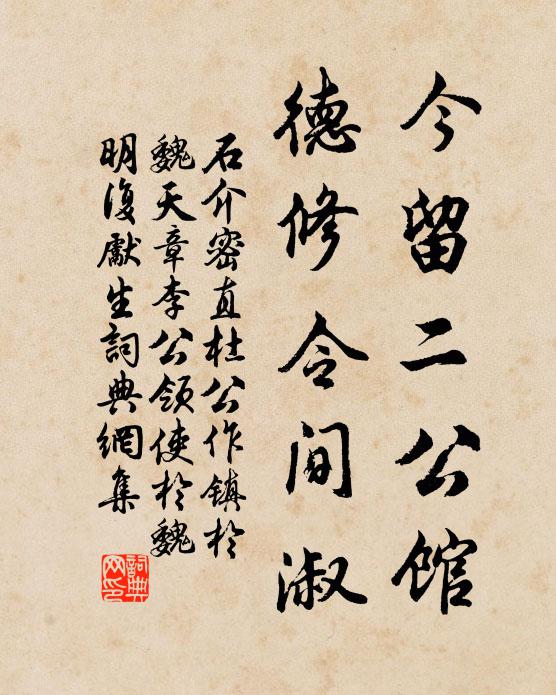 今留二公館
德修令间淑
石介密直杜公作镇於
魏天章李公领使於魏
明復獻生詞典網集
詞典
网印